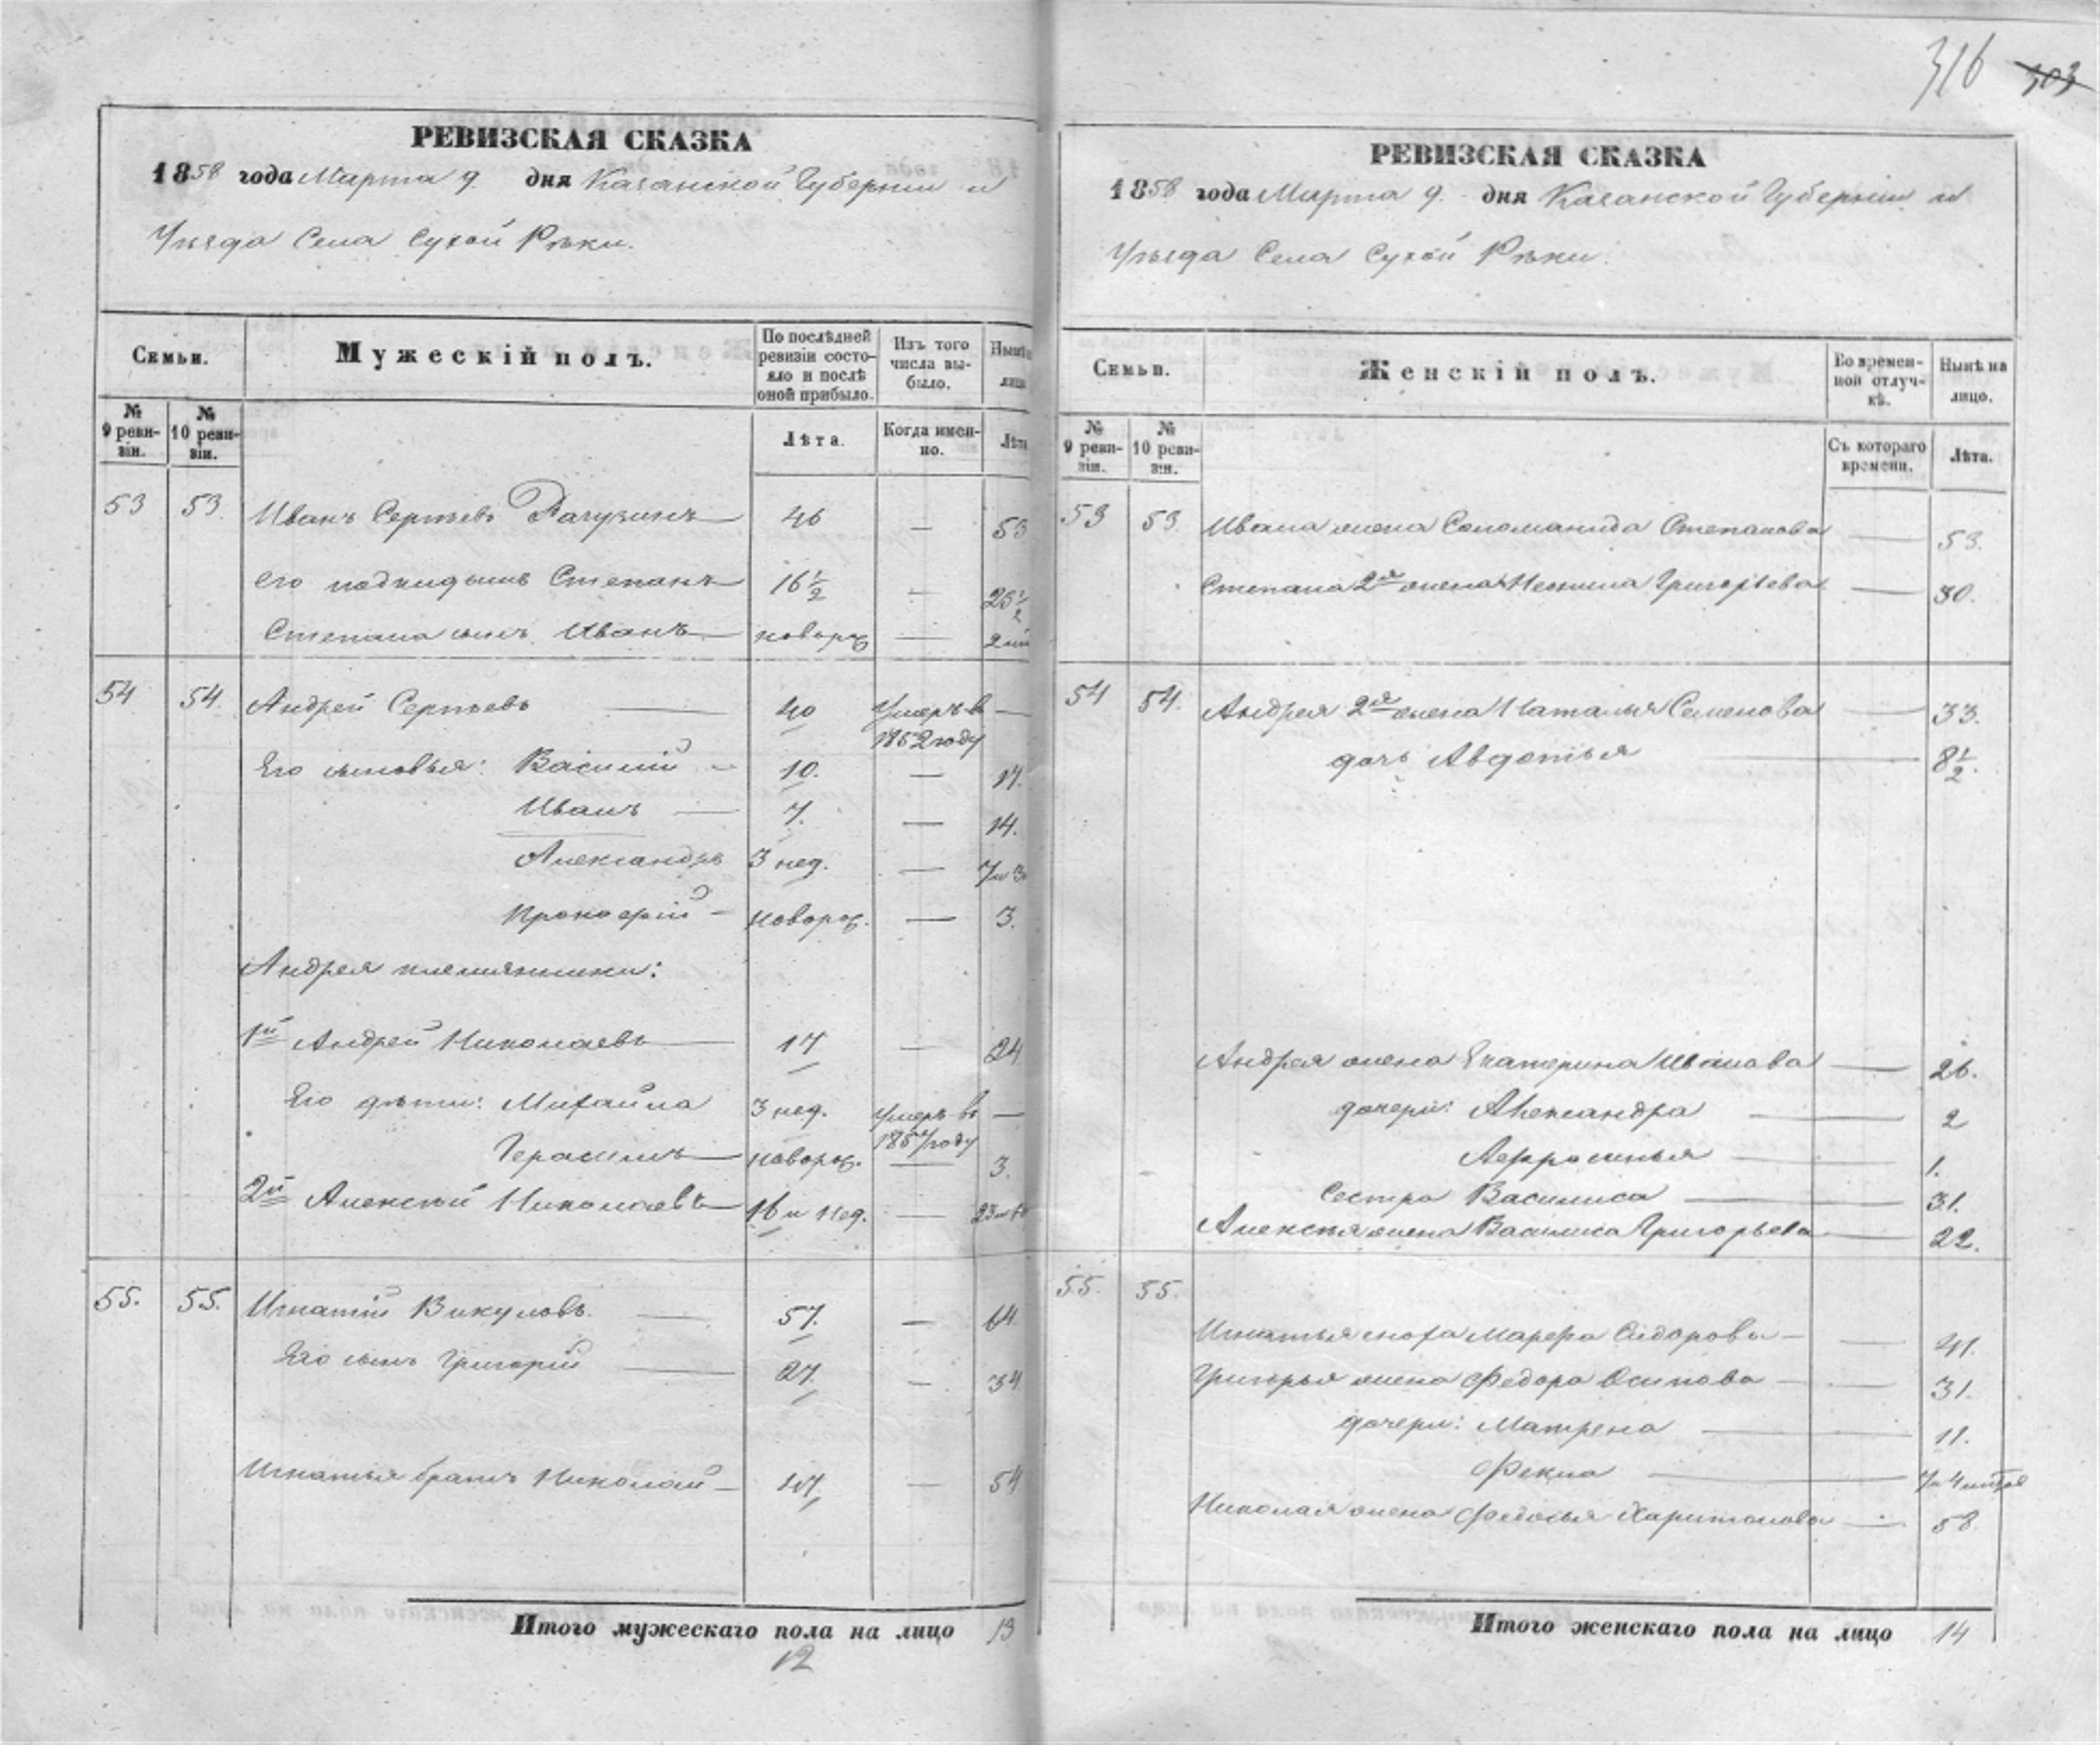 316 303
РЕВИЗСКАЯ СКАЗКА
1858 года Марта 9. дня Казанской Губернии и
Уѣзда Села Сухой Рѣки.
Семьи.
Мужескій полъ.
По послѣдней ревизіи состояло и послѣ оной прибыло.
Изъ того числа выбыло.
Нынѣ на лицо
№ 9 ревизіи.
№ 10 ревизіи.
Лѣта.
Когда именно.
Лѣта
53 53. Иванъ Сергѣевъ 46 — 53
Его подкидышъ Степанъ 16 1/2 — 23 1/2
Степана сынъ Иванъ новорож —
54 54. Андрей Сергѣевъ — 40 Умеръ въ 1852 году —
Его сыновья: Василій — 10. — 17.
Иванъ — 7. — 14.
Александръ 3 нед. —
Прокофій — новорож. — 3.
Андрея племянники:
1й Андрей Николаевъ — 17 — 24
Его дѣти: Михайла 3 нед. Умеръ въ 1857 году —
Герасимъ — новорож. — 3.
2й Алексѣй Николаевъ — 16 и нед. —
55. 55. Игнатій Викуловъ. — 57. — 64.
Его сынъ Григорій — 27. — 34
Игнатья братъ Николай — 47. — 54
Итого мужескаго пола на лицо 13
12
РЕВИЗСКАЯ СКАЗКА
1858 года Марта 9. дня Казанской Губерніи и
Уѣзда Села Сухой Рѣки.
Семьи.
Женскій полъ.
Во временной отлучкѣ.
Нынѣ на лицо.
№ 9 ревизіи.
№ 10 ревизіи.
Съ котораго времени.
Лѣта.
53 53. Ивана жена Соломанида Степанова — 53.
Степана 2я жена Ненила Григорьева — 30.
54 54. Андрея 2я жена Наталья Семенова — 33.
дочь Авдотья — 8 1/2.
Андрея жена Екатерина Иванова — 26.
дочери: Александра — 2
Аефросинья — 1.
Сестра Василиса — 31.
Алексѣя жена Василиса Григорьева — 22.
55. 55.
Игнатья сноха Марфа Сидорова — 41.
Григорья жена Федора Осипова — 31.
дочери: Матрена — 11.
Фекла —
Николая жена Федосья Харитонова — 58.
Итого женскаго пола на лицо 14